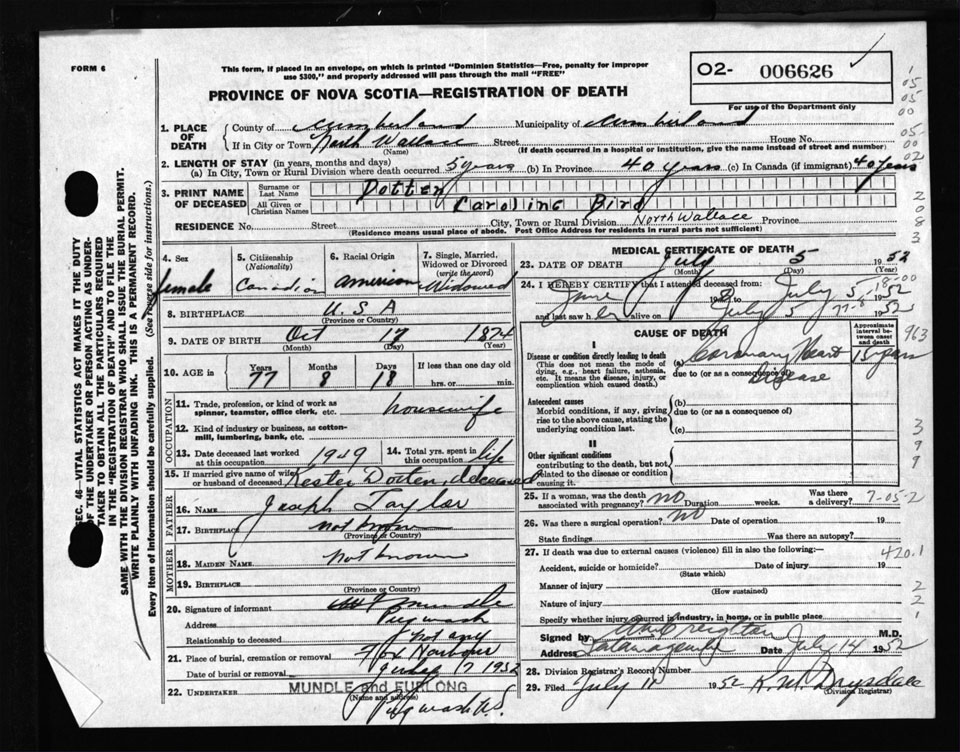 FORM 6
This form, if placed in an envelope, on which is printed "Dominion Statistics—Free, penalty for improper
use $300," and properly addressed will pass through the mail "FREE"
O2- 006626
For use of the Department only
PROVINCE OF NOVA SCOTIA—REGISTRATION OF DEATH
1. PLACE OF DEATH
County of Cumberland Municipality of Cumberland
If in City or Town North Wallace Street House No.
(Name) (If death occurred in a hospital or institution, give the name instead of street and number)
2. LENGTH OF STAY (in years, months and days)
(a) In City, Town or Rural Division where death occurred 5 years (b) In Province 40 years (c) In Canada (if immigrant) 40 years
3. PRINT NAME OF DECEASED
Surname or Last Name Dotten
All Given or Christian Names Caroline Bird
RESIDENCE No. Street City, Town or Rural Division North Wallace Province
(Residence means usual place of abode. Post Office Address for residents in rural parts not sufficient)
4. Sex female
5. Citizenship (Nationality) Canadian
6. Racial Origin American
7. Single, Married, Widowed or Divorced (write the word) Widowed
8. BIRTHPLACE U.S.A
(Province or Country)
9. DATE OF BIRTH Oct 17 1874
(Month) (Day) (Year)
10. AGE in Years 77 Months 8 Days 18 If less than one day old hrs. or min.
OCCUPATION
11. Trade, profession, or kind of work as spinner, teamster, office clerk, etc. housewife
12. Kind of industry or business, as cotton-mill, lumbering, bank, etc.
13. Date deceased last worked at this occupation 1949
14. Total yrs. spent in this occupation life
15. If married give name of wife or husband of deceased Lester Dotten, deceased
FATHER
16. NAME Joseph Taylor
17. BIRTHPLACE not known
(Province or Country)
MOTHER
18. MAIDEN NAME Not known
19. BIRTHPLACE
(Province or Country)
20. Signature of informant Mundle
Address Pugwash
Relationship to deceased not any
21. Place of burial, cremation or removal Fox Harbour
Date of burial or removal July 7 1952
22. UNDERTAKER MUNDLE and FURLONG
(Name and Address)
Pugwash N.S.
MEDICAL CERTIFICATE OF DEATH
23. DATE OF DEATH July 5 1952
(Month) (Day) (Year)
24. I HEREBY CERTIFY that I attended deceased from:
June 1952 to July 5 1952
and last saw her alive on July 5 1952
CAUSE OF DEATH
Approximate interval between onset and death
I
Disease or condition directly leading to death
(This does not mean the mode of dying, e.g., heart failure, asthenia, etc. It means the disease, injury, or complication which caused death.)
(a) Coronary Heart Disease 15 years
due to (or as a consequence of)
Antecedent causes
Morbid conditions, if any, giving rise to the above cause, stating the underlying condition last.
(b)
due to (or as a consequence of)
(c)
II
Other significant conditions
contributing to the death, but not related to the disease or condition causing it.
25. If a woman, was the death associated with pregnancy? NO Duration weeks. Was there a delivery?
26. Was there a surgical operation? NO Date of operation 19
State findings Was there an autopsy?
27. If death was due to external causes (violence) fill in also the following:—
Accident, suicide or homicide? Date of injury 19
(State which)
Manner of injury
(How sustained)
Nature of injury
Specify whether injury occurred in industry, in home, or in public place
Signed by Creighton M.D.
Address Tatamagouche Date July 14 1952
28. Division Registrar's Record Number
29. Filed July 11 1952 K. M. Drysdale
(Division Registrar)
963
7-05-2
420.1
SEC. 46—VITAL STATISTICS ACT MAKES IT THE DUTY
OF THE UNDERTAKER OR PERSON ACTING AS UNDER-
TAKER TO OBTAIN ALL THE PARTICULARS REQUIRED
IN THE "REGISTRATION OF DEATH" AND TO FILE THE
SAME WITH THE DIVISION REGISTRAR WHO SHALL ISSUE THE BURIAL PERMIT.
WRITE PLAINLY WITH UNFADING INK. THIS IS A PERMANENT RECORD.
Every item of information should be carefully supplied. (See reverse side for instructions.)